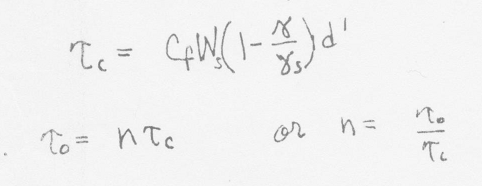 τc = CfWs(1 - γ/γs)d'
τo = nτc or n = τo/τc